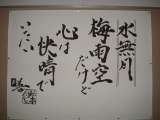 水無月
梅雨空
だけど
心は
快晴で
いたい